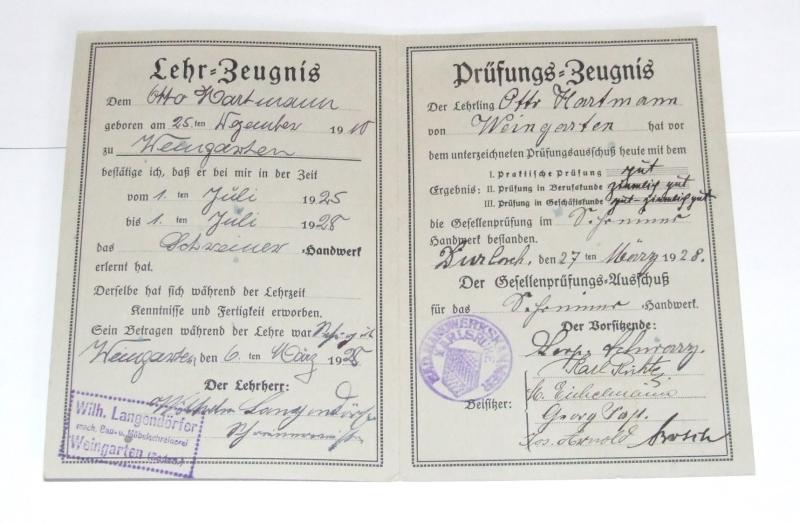 Lehr-Zeugnis
Dem Otto Hartmann
geboren am 25. ten Dezember 1910
zu Weingarten
bestätige ich, daß er bei mir in der Zeit
vom 1. ten Juli 1925
bis 1. ten Juli 1928
das Schreiner-Handwerk
erlernt hat.
Derselbe hat sich während der Lehrzeit
Kenntnisse und Fertigkeit erworben.
Sein Betragen während der Lehre war
Weingarten, den 6. ten März 1928
Der Lehrherr:
Wilhelm Langendörfer
Schreinermeister
Wilh. Langendörfer
mech. Bau- u. Möbelschreinerei
Weingarten (Baden)
Prüfungs-Zeugnis
Der Lehrling Otto Hartmann
von Weingarten hat vor
dem unterzeichneten Prüfungsausschuß heute mit dem
Ergebnis:
I. Praktische Prüfung gut
II. Prüfung in Berufskunde ziemlich gut
III. Prüfung in Geschäftskunde gut - ziemlich gut
die Gesellenprüfung im Schreiner
Handwerk bestanden.
Durlach, den 27 ten März 1928.
Der Gesellenprüfungs-Ausschuß
für das Schreiner-Handwerk.
Der Vorsitzende:
Schwarz.
Karl
Beisitzer:
Georg
Jos. Arnold
BAD. HANDWERKSKAMMER
KARLSRUHE